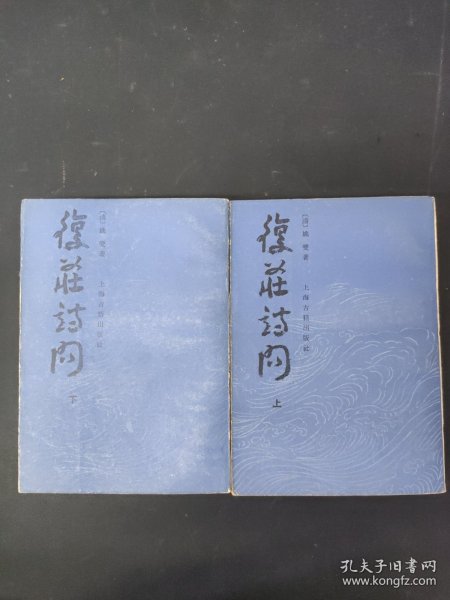 復莊詩問
下
〔清〕姚燮著
上海古籍出版社
復莊詩問
上
〔清〕姚燮著
上海古籍出版社
孔夫子旧书网
www.kongfz.com